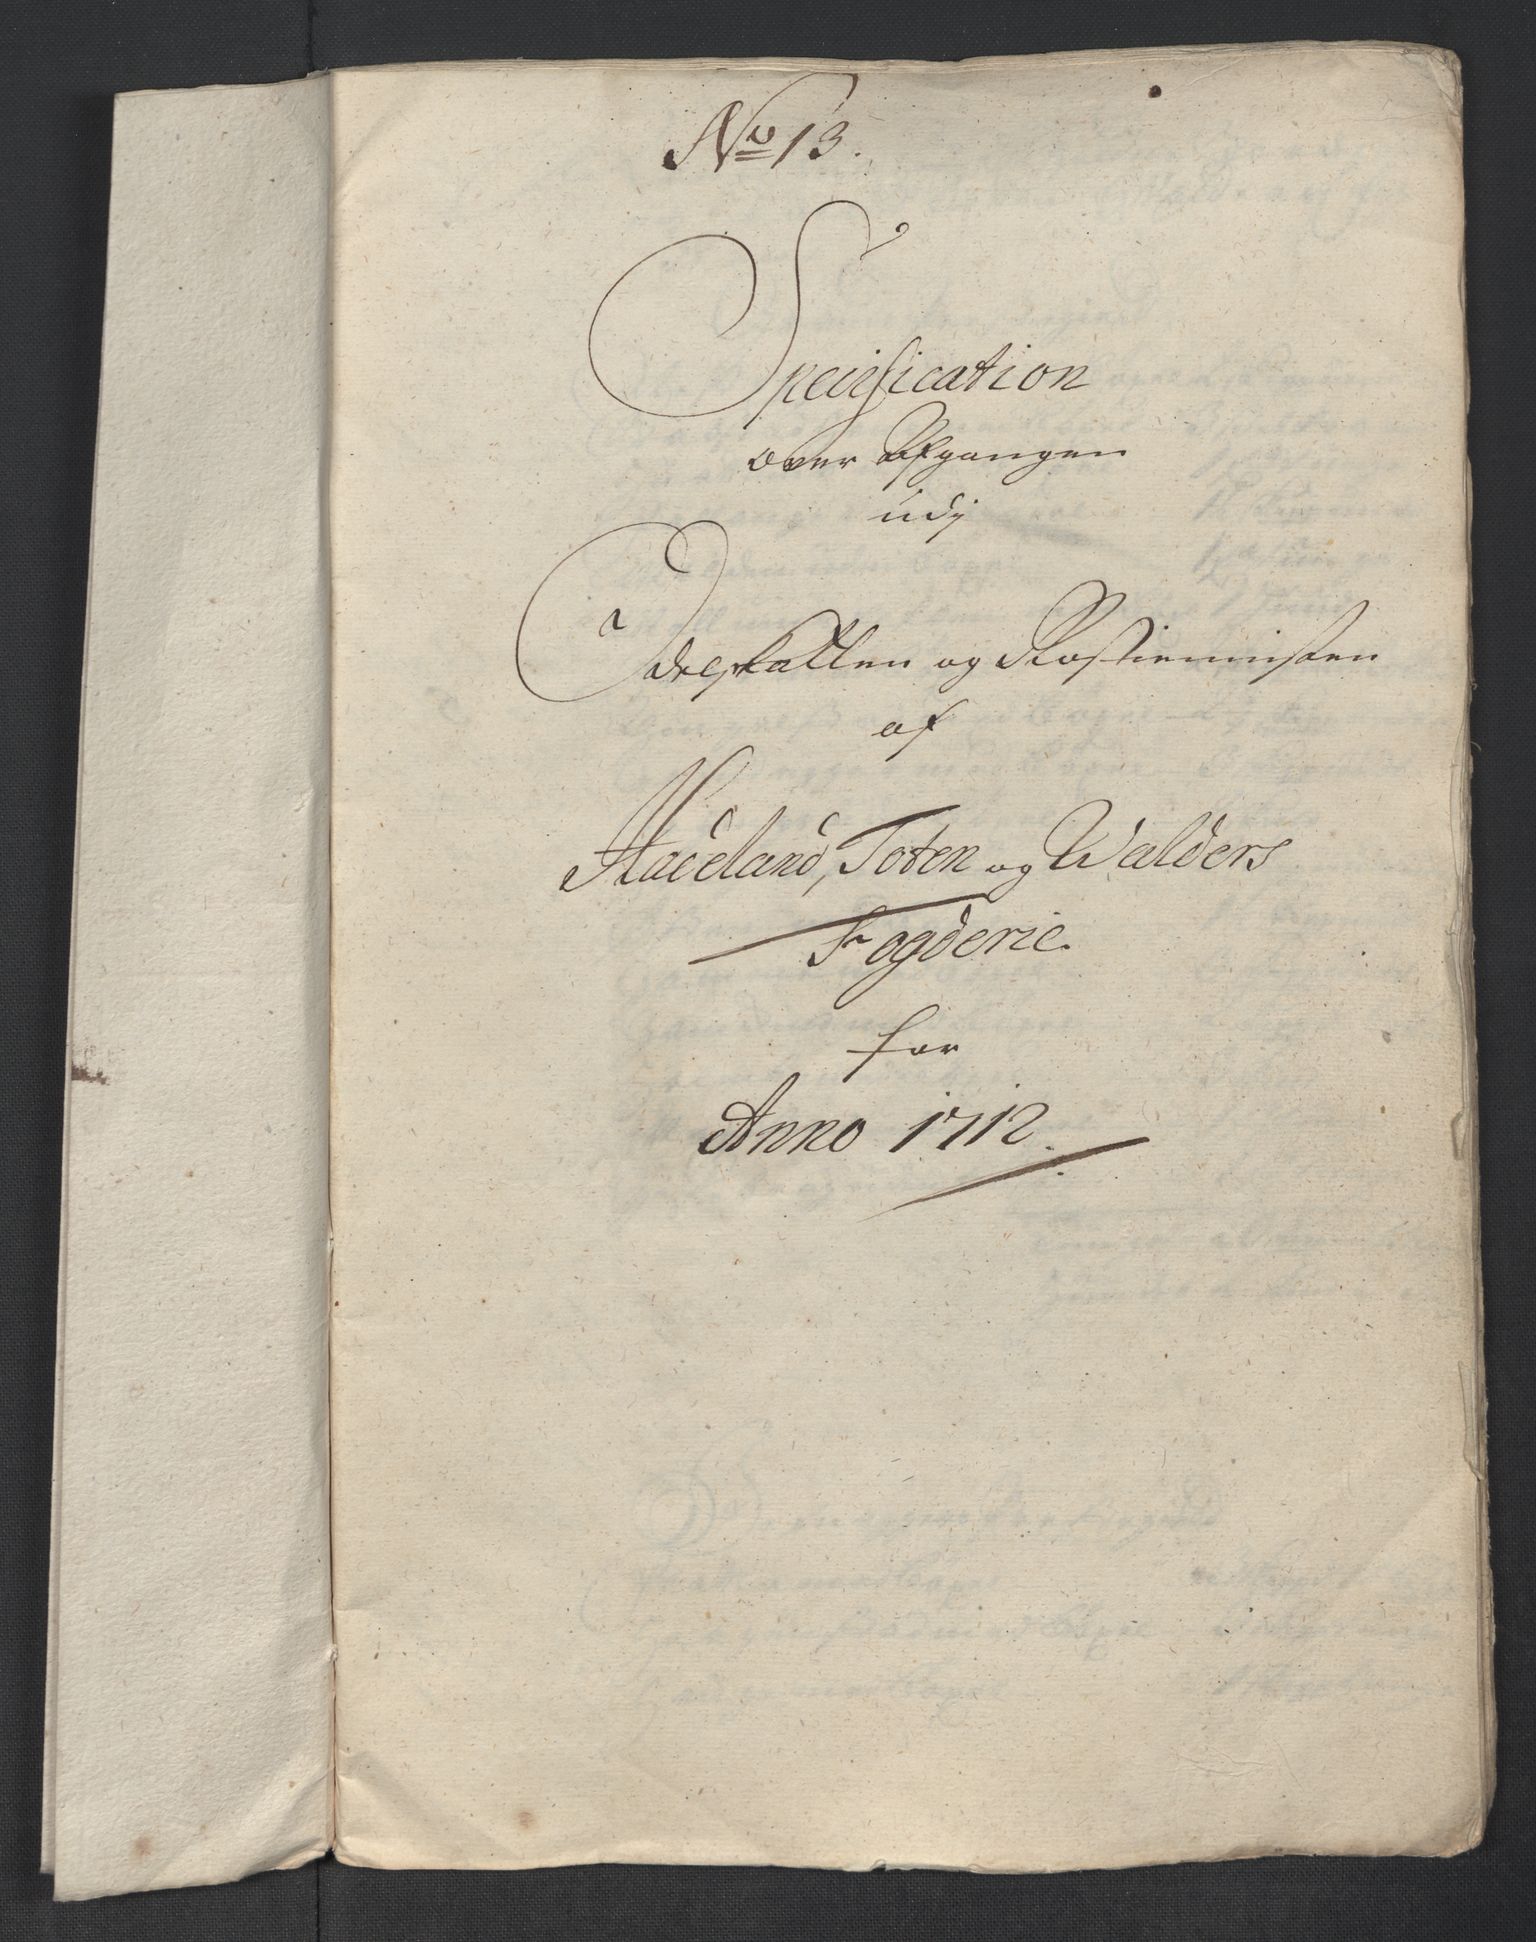 No 13.
Specification
over Afgangen
udj
Odelskatten og Rostiennisten
af
Hadeland, Toten og Walders
Fogderie.
for
Anno 1712.